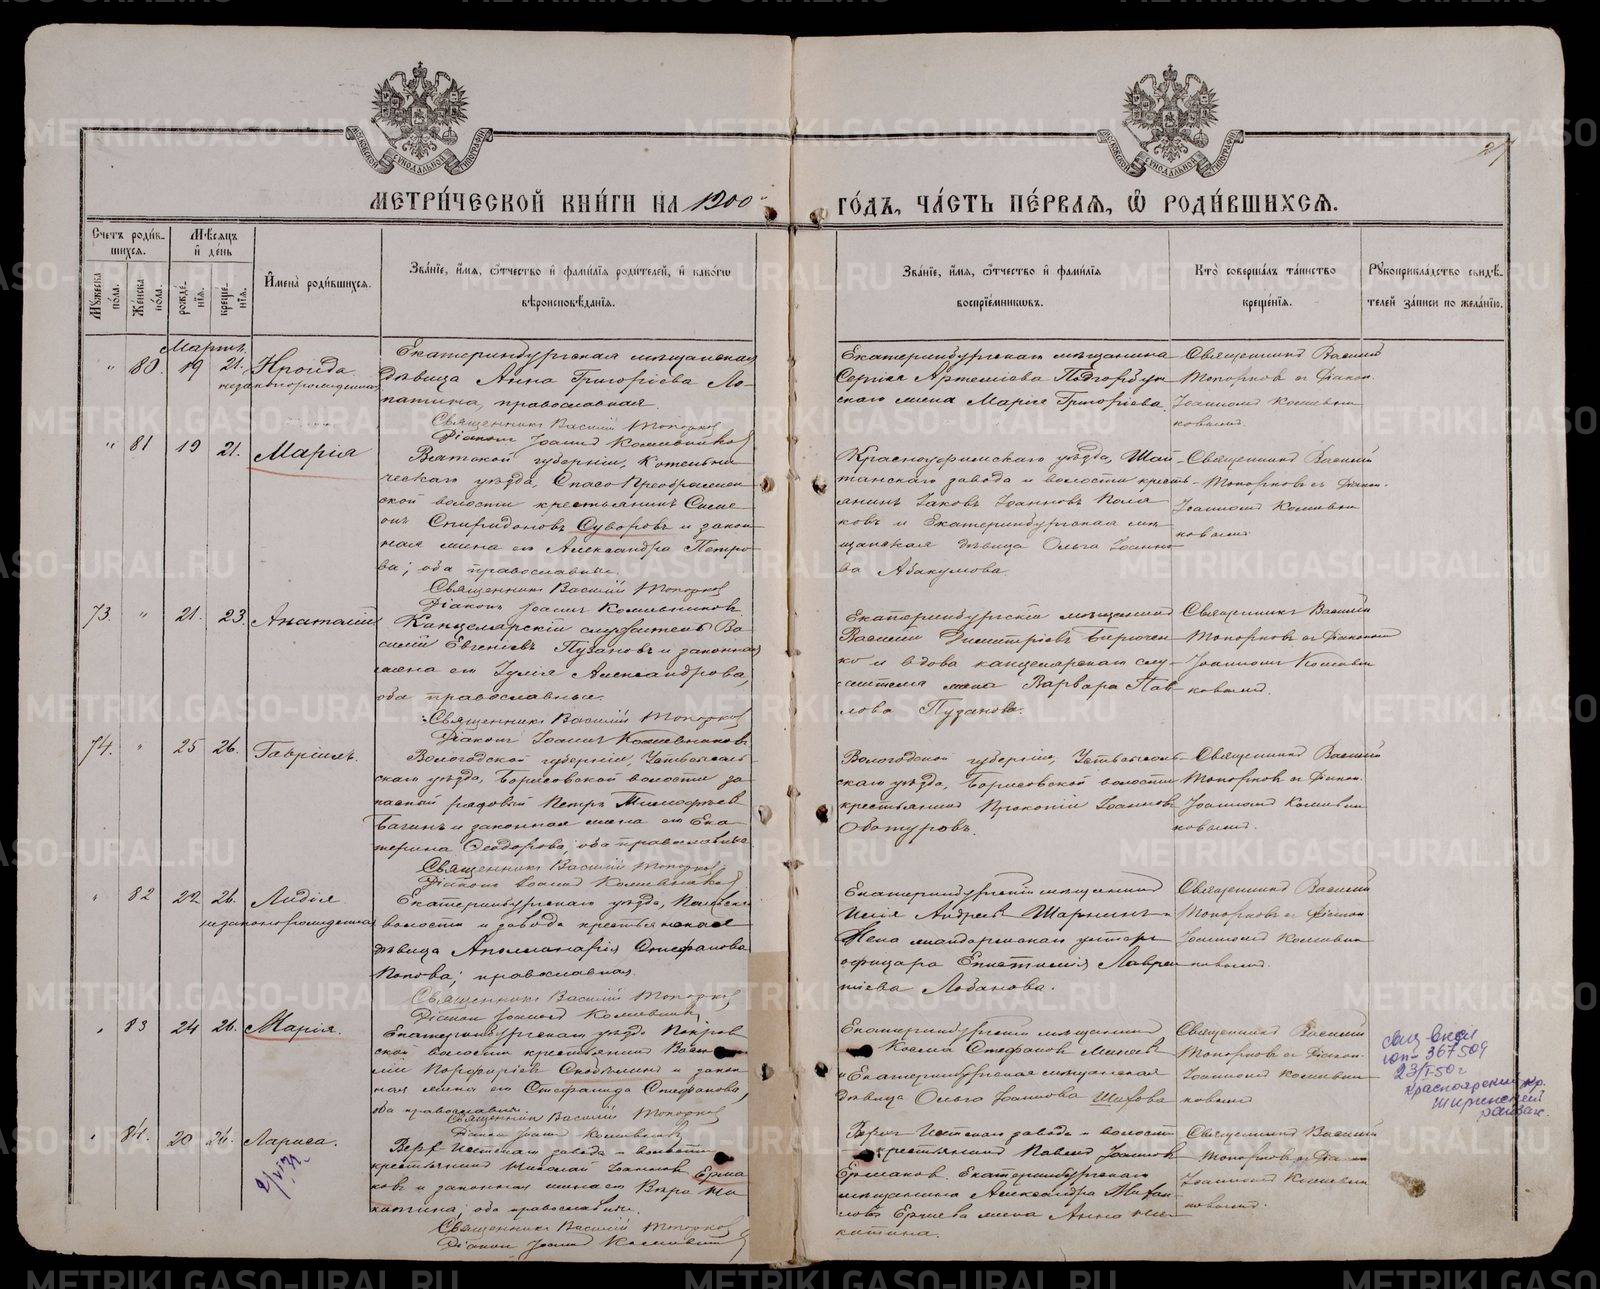 27
МЕТРИ́ЧЕСКОЙ КНИ́ГИ НА 1900 ГО́ДЪ, ЧА́СТЬ ПЕ́РВАЯ, Ѿ РОДИ́ВШИХСЯ.
Счетъ роди́вшихся.
Мꙋжеска по́ла.
Же́нска по́ла.
Мѣсяцъ и де́нь
рожде́нїя.
креще́нїя.
Имена̀ роди́вшихся.
Зва́нїе, и́мя, ѻ́тчество и фами́лїя роди́телей, и како́гѡ
вѣроисповѣ́данїя.
Зва́нїе, и́мя, ѻ́тчество и фами́лїя
воспрїе́мникѡвъ.
Кто̀ соверша́лъ та́инство
креще́нїя.
Рꙋкоприкла́дство свидѣ́телей за́писи по жела́нїю.
Мартъ
" 80. 19 21. Ираида
незаконнорожденная
Екатеринбургская мѣщанская
дѣвица Анна Григоріева Ло-
патина, православная.
Священникъ Василій Топорковъ
Діаконъ Іоаннъ Кожевниковъ
Екатеринбургскаго мѣщанина
Сергія Артеміева Подгорбун-
скаго жена Марія Григоріева.
Священникъ Василій
Топорковъ съ діакон.
Іоанномъ Кожевни-
ковымъ.
" 81 19 21. Марія
Вятской губерніи, Котельни-
ческаго уѣзда, Спасо-Преображен-
ской волости крестьянинъ Симе-
онъ Спиридоновъ Суворовъ и закон-
ная жена его Александра Петро-
ва; оба православные.
Священникъ Василій Топорковъ
Діаконъ Іоаннъ Кожевниковъ
Красноуфимскаго уѣзда, Шай-
танскаго завода и волости кресть-
янинъ Іаковъ Іоанновъ Поля-
ковъ и Екатеринбургская мѣ-
щанская дѣвица Ольга Іоанно-
ва Абакумова.
Священникъ Василій
Топорковъ съ діакон.
Іоанномъ Кожевни-
ковымъ.
73. " 21. 23. Анатолій
Канцелярскій служитель Ва-
силій Евгеніевъ Пузановъ и законная
жена его Іулія Александрова,
оба православные.
Священникъ Василій Топорковъ
Діаконъ Іоаннъ Кожевниковъ
Екатеринбургскій мѣщанинъ
Василій Димитріевъ Бирючен-
ко и вдова канцелярскаго слу-
жителя жена Варвара Пав-
лова Пузанова.
Священникъ Василій
Топорковъ съ діакономъ
Іоанномъ Кожевни-
ковымъ.
74. " 25 26. Гавріилъ.
Вологодской губерніи, Устьсысоль-
скаго уѣзда, Борисовской волости за-
пасной рядовой Петръ Тимофѣевъ
Багинъ и законная жена его Ека-
терина Ѳеодорова; оба православные
Священникъ Василій Топорковъ
Діаконъ Іоаннъ Кожевниковъ
Вологодской губерніи, Устьсысоль-
скаго уѣзда, Борисовской волости
крестьянинъ Прокопій Іоанновъ
Обатуровъ.
Священникъ Василій
Топорковъ съ діакон.
Іоанномъ Кожевни-
ковымъ.
" 82 22 26. Лидія
незаконнорожденная
Екатеринбургскаго уѣзда,
волости и завода крестьянская
дѣвица Апполинарія Стефанова
Попова; православная.
Священникъ Василій Топорковъ
Діаконъ Іоаннъ Кожевник.
Екатеринбургскій мѣщанинъ
Илія Андреевъ Шарнинъ и
жена жандармскаго унтеръ
офицера Евпатія Лаврен-
тіева Лобанова.
Священникъ Василій
Топорковъ съ діакон.
Іоанномъ Кожевни-
ковымъ.
" 83 24 26. Марія.
Екатеринбургскаго уѣзда Покров-
ской волости крестьянинъ Васи-
лій Порфиріевъ Скобелинъ и закон-
ная жена его Стефанида Стефанова,
оба православн.
Священникъ Василій Топорковъ
Діаконъ Іоаннъ Кожевниковъ
Екатеринбургскій мѣщанинъ
Косма Стефановъ Михѣевъ
и Екатеринбургская мѣщанская
дѣвица Ольга Іоаннова Шифова
Священникъ Василій
Топорковъ съ діакон.
Іоанномъ Кожевни-
ковымъ
367509
23/I-50 г
Красноярский кр.
Ширинский
райзаг.
" 84. 20 26. Лариса.
Верх-Исетскаго завода и волости
крестьянинъ Николай Іоанновъ Ерма-
ковъ и законная жена его Вѣра Ни-
китина; оба православные.
Священникъ Василій Топорковъ
Діаконъ Іоаннъ Кожевник
Верхъ-Исетскаго завода и волости
крестьянинъ Павелъ Іоанновъ
Ермаковъ. Екатеринбургскаго
мѣщанина Александра Михаи-
лова Ершева жена Анна Ни-
китина.
Священникъ Василій
Топорковъ съ діакон
Іоанномъ Кожевни-
ковымъ.
METRIKI.GASO-URAL.RU